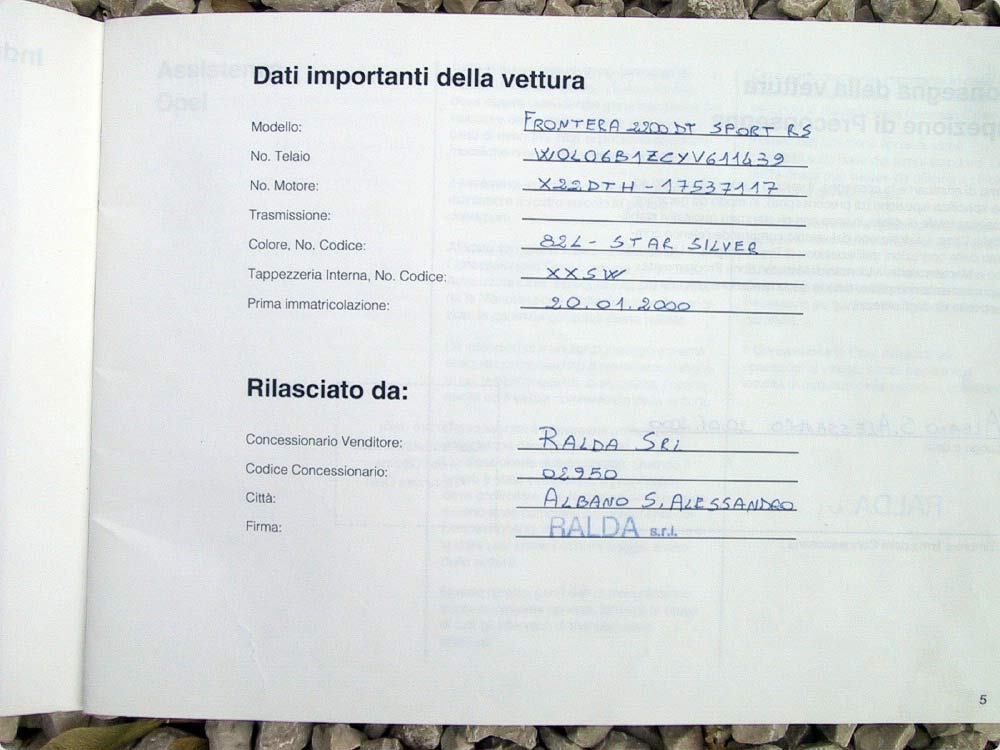 Dati importanti della vettura
Modello: FRONTERA 2200 DT SPORT RS
No. Telaio W0L06B1ZCYV611439
No. Motore: X22DTH - 17537117
Trasmissione:
Colore, No. Codice: 82L - STAR SILVER
Tappezzeria Interna, No. Codice: XXSW
Prima immatricolazione: 20.01.2000
Rilasciato da:
Concessionario Venditore: RALDA SRL
Codice Concessionario: 02950
Città: ALBANO S. ALESSANDRO
Firma: RALDA s.r.l.
5